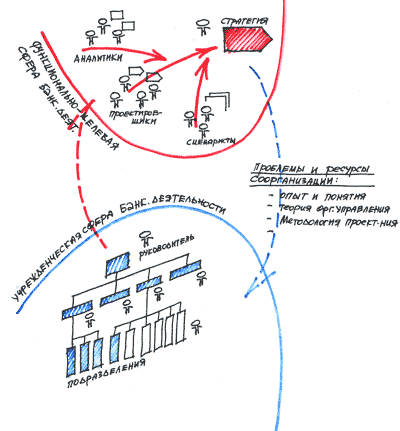 СТРАТЕГИЯ
АНАЛИТИКИ
ПРОЕКТИРОВ-
ЩИКИ
СЦЕНАРИСТЫ
ФУНКЦИОНАЛЬНО-ЦЕЛЕВАЯ
СФЕРА БАНК.ДЕЯТ.
Проблемы и ресурсы
Соорганизации:
- опыт и понятия
- Теория орг.управления
- Методология проект-ния
-
УЧРЕЖДЕНЧЕСКАЯ СФЕРА БАНК. ДЕЯТЕЛЬНОСТИ
РУКОВОДИТЕЛЬ
ПОДРАЗДЕЛЕНИЯ